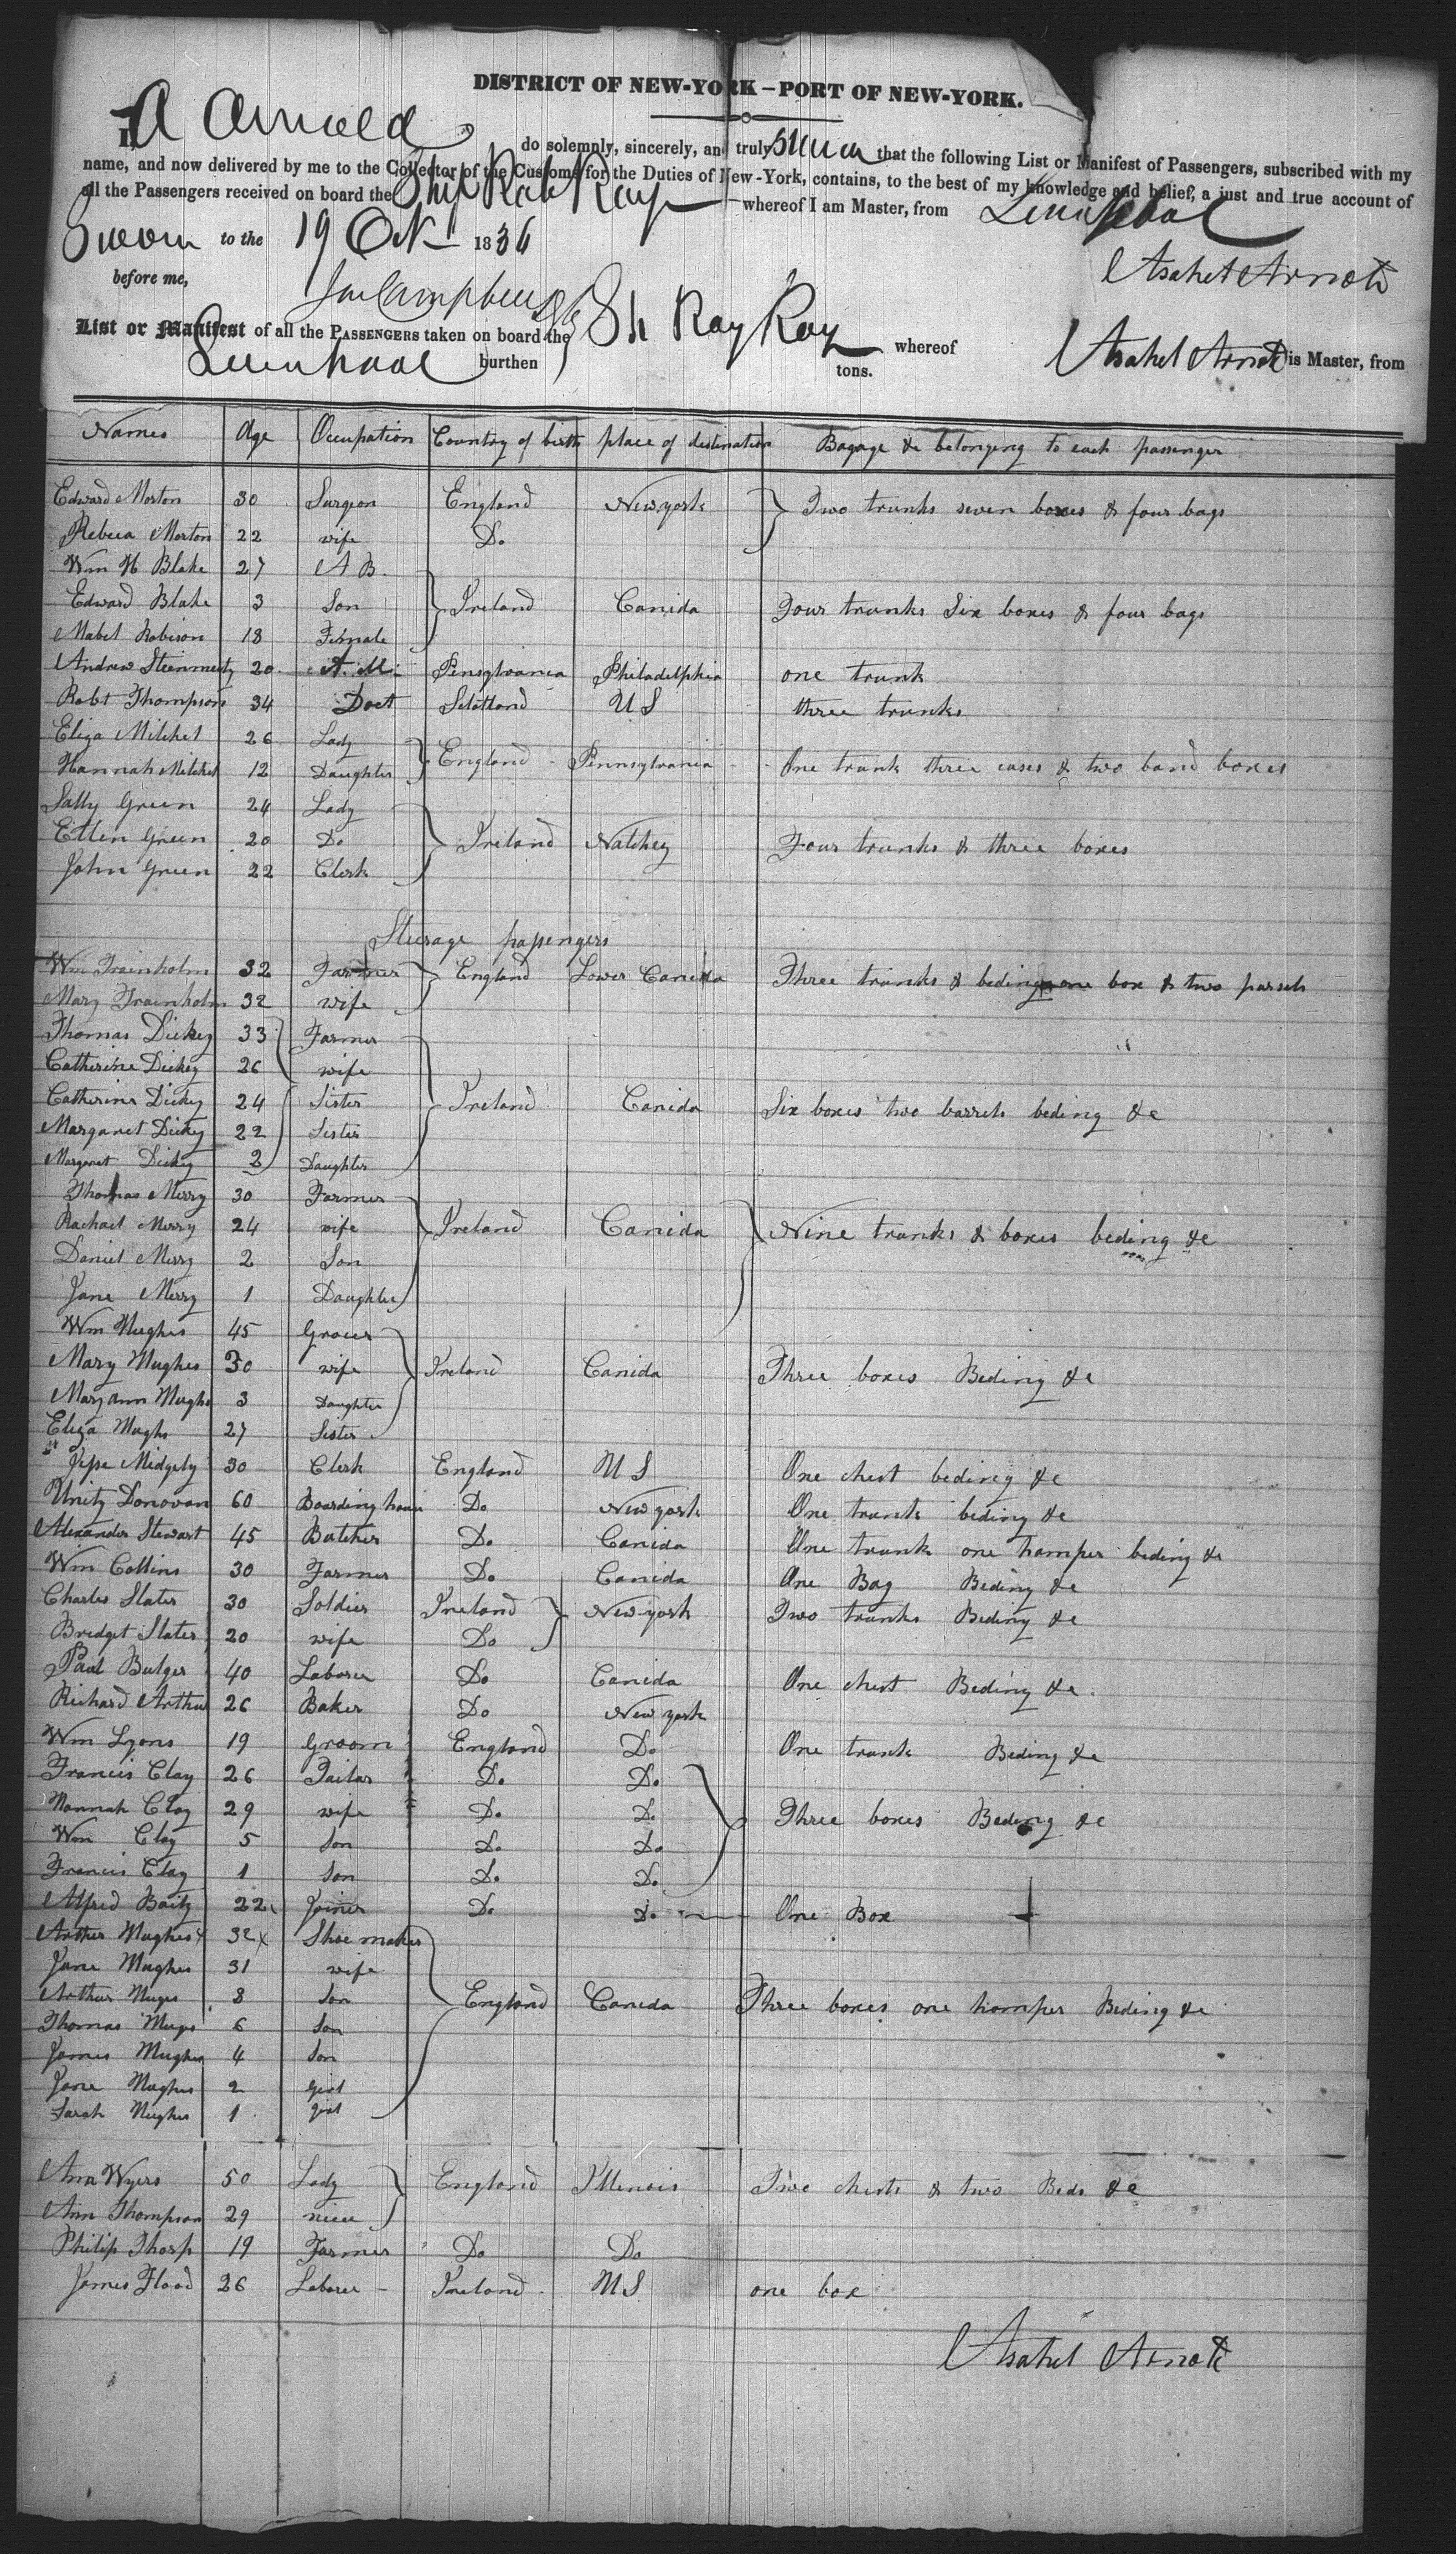 DISTRICT OF NEW-YORK — PORT OF NEW-YORK.
I, A Arnold do solemnly, sincerely, and truly swear that the following List or Manifest of Passengers, subscribed with my
name, and now delivered by me to the Collector of the Customs for the Duties of New-York, contains, to the best of my knowledge and belief, a just and true account of
all the Passengers received on board the Ship Rob Ray whereof I am Master, from Liverpool
Sworn to the 19 Oct 1836
before me,
Asahel Arnold
Campbell
List or Manifest of all the PASSENGERS taken on board the Sh Roy Ray whereof Asahel Arnold is Master, from
Liverpool burthen tons.
Names Age Occupation Country of birth place of destination Bagage &c belonging to each passenger
Edward Morton 30 Surgeon England Newyork Two trunks seven boxes & four bags
Rebeca Morton 22 wife Do
Wm H Blake 27 A B.
Edward Blake 3 Son Ireland Canida Four trunks Six boxes & four bags
Mabel Robison 18 Female
Andrew Steinmetz 20 A. M. Pensylvania Philadelphia one trunk
Robt Thompson 34 Doct Scotland U S three trunks
Eliza Mitchel 26 Lady
Hannah Mitchel 12 Daughter England Pennsylvania One trunk three cases & two band boxes
Sally Green 24 Lady
Ellen Green 20 Do Ireland Natchez Four trunks & three boxes
John Green 22 Clerk
Sturage passengers
Wm Trainholm 32 Farmer England Lower Canida Three trunks & beding one box & two parsels
Mary Trainholm 32 wife
Thomas Dickey 33 Farmer
Catherine Dickey 26 wife
Catherine Dickey 24 Sister Ireland Canida Six boxes two barrels beding &c
Margaret Dickey 22 Sister
Margaret Dickey 2 Daughter
Thomas Merry 30 Farmer
Rachael Merry 24 wife Ireland Canida Nine trunks & boxes beding &c
Daniel Merry 2 Son
Jane Merry 1 Daughter
Wm Hughes 45 Grocer
Mary Hughes 30 wife Ireland Canida Three boxes Beding &c
Mary ann Hughs 3 Daughter
Eliza Hughs 27 Sister
Jesse Midgely 30 Clerk England U S One chest beding &c
Unity Donovan 60 Boarding house Do Newyork One trunk beding &c
Alexander Stewart 45 Butcher Do Canida One trunk one hamper beding &c
Wm Collins 30 Farmer Do Canida One Bag Beding &c
Charles Slater 30 Soldier Ireland Newyork Two trunks Beding &c
Bridget Slater 20 wife Do
Paul Bulger 40 Laborer Do Canida One chest Beding &c
Richard Arthur 26 Baker Do New york
Wm Lyons 19 Groom England Do One trunk Beding &c
Francis Clay 26 Tailor Do Do
Hannah Clay 29 wife Do Do Three boxes Beding &c
Wm Clay 5 Son Do Do
Francis Clay 1 Son Do Do
Alfred Baitz 22 Joiner Do Do One Box
Arther Hughes 32 Shoe maker
Jane Hughes 31 wife
Arthur Huges 8 Son England Canida Three boxes one hamper Beding &c
Thomas Huges 6 Son
James Hughes 4 Son
Jane Hughes 2 Girl
Sarah Hughes 1 girl
Ann Wyers 50 Lady England Illinois Two chests & two Beds &c
Ann Thompson 29 niece
Philip Thorp 19 Farmer Do Do
James Flood 26 Laborer Ireland U S one box
Asahel Arnold